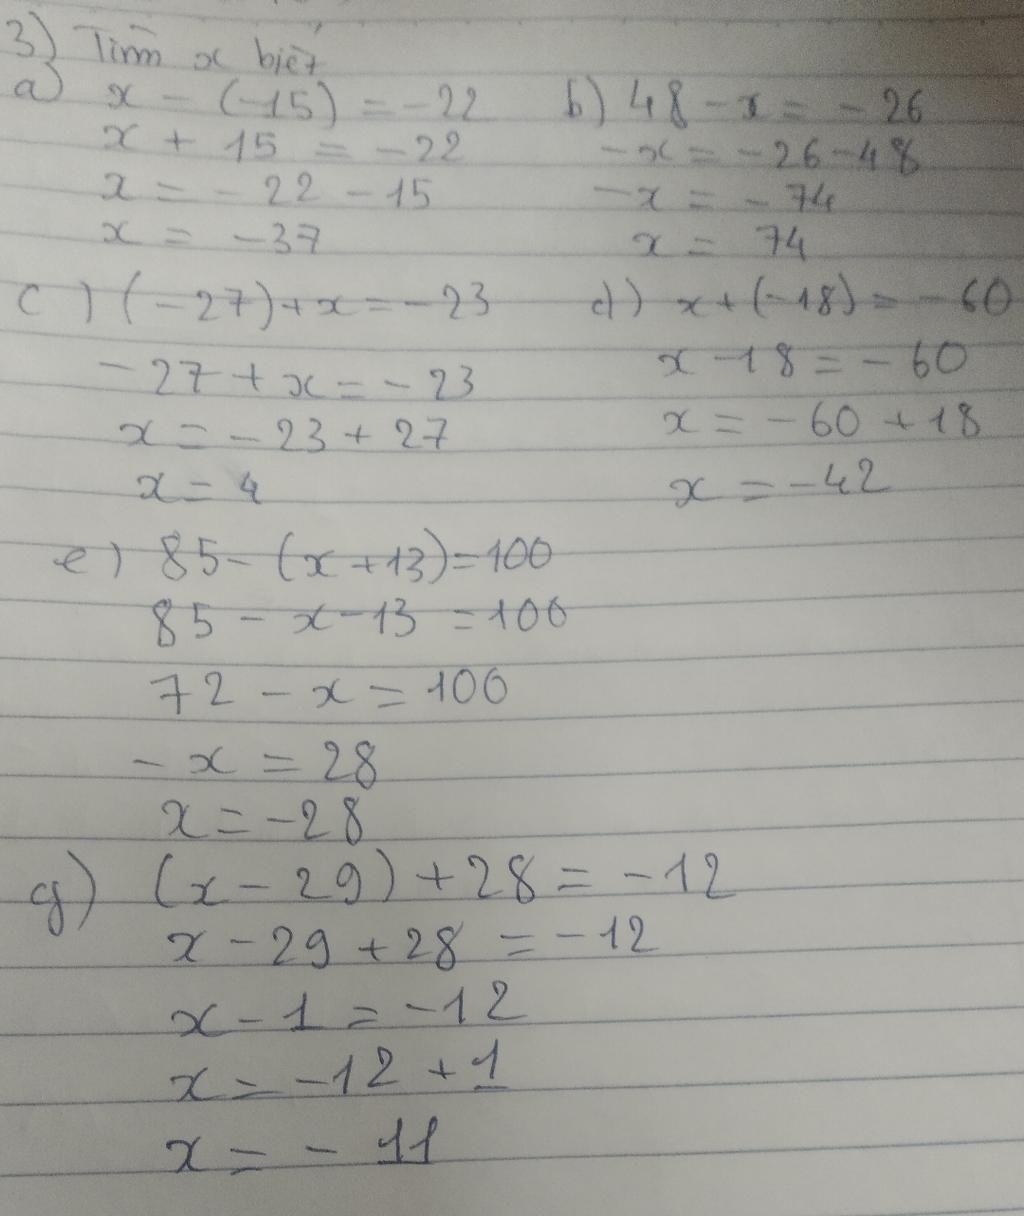 3) Tìm x biết
a) x - (-15) = -22
x + 15 = -22
x = - 22 - 15
x = -37
b) 48 - x = - 26
-x = -26-48
-x = - 74
x = 74
c) (-27)+x = -23
-27 + x = - 23
x = - 23 + 27
x = 4
d) x+(-18) = -60
x -18 = - 60
x = -60 + 18
x = -42
e) 85- (x +13)=100
85 - x -13 = 100
72 - x = 100
- x = 28
x = -28
g) (x - 29) + 28 = -12
x - 29 + 28 = - 12
x - 1 = -12
x = -12 + 1
x = - 11